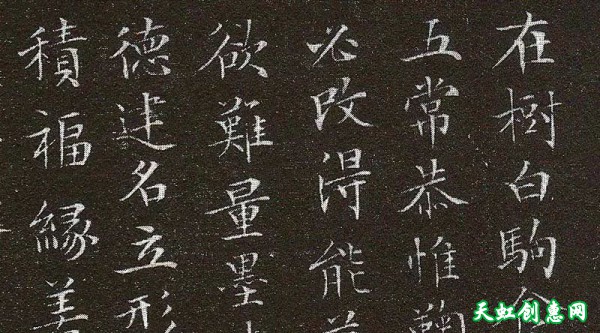 在樹白駒
五常恭惟鞠
必改得能
欲難量墨
德建名立形
積福緣善
天虹创惠网